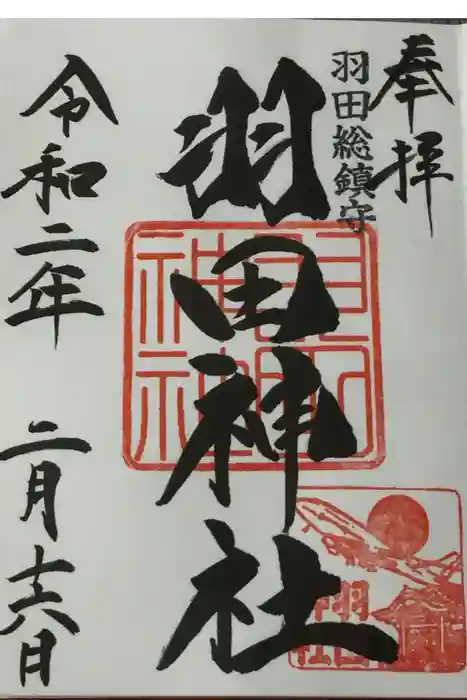 奉拝
羽田総鎮守
羽田神社
羽田神社
羽田神社
令和二年 二月十六日